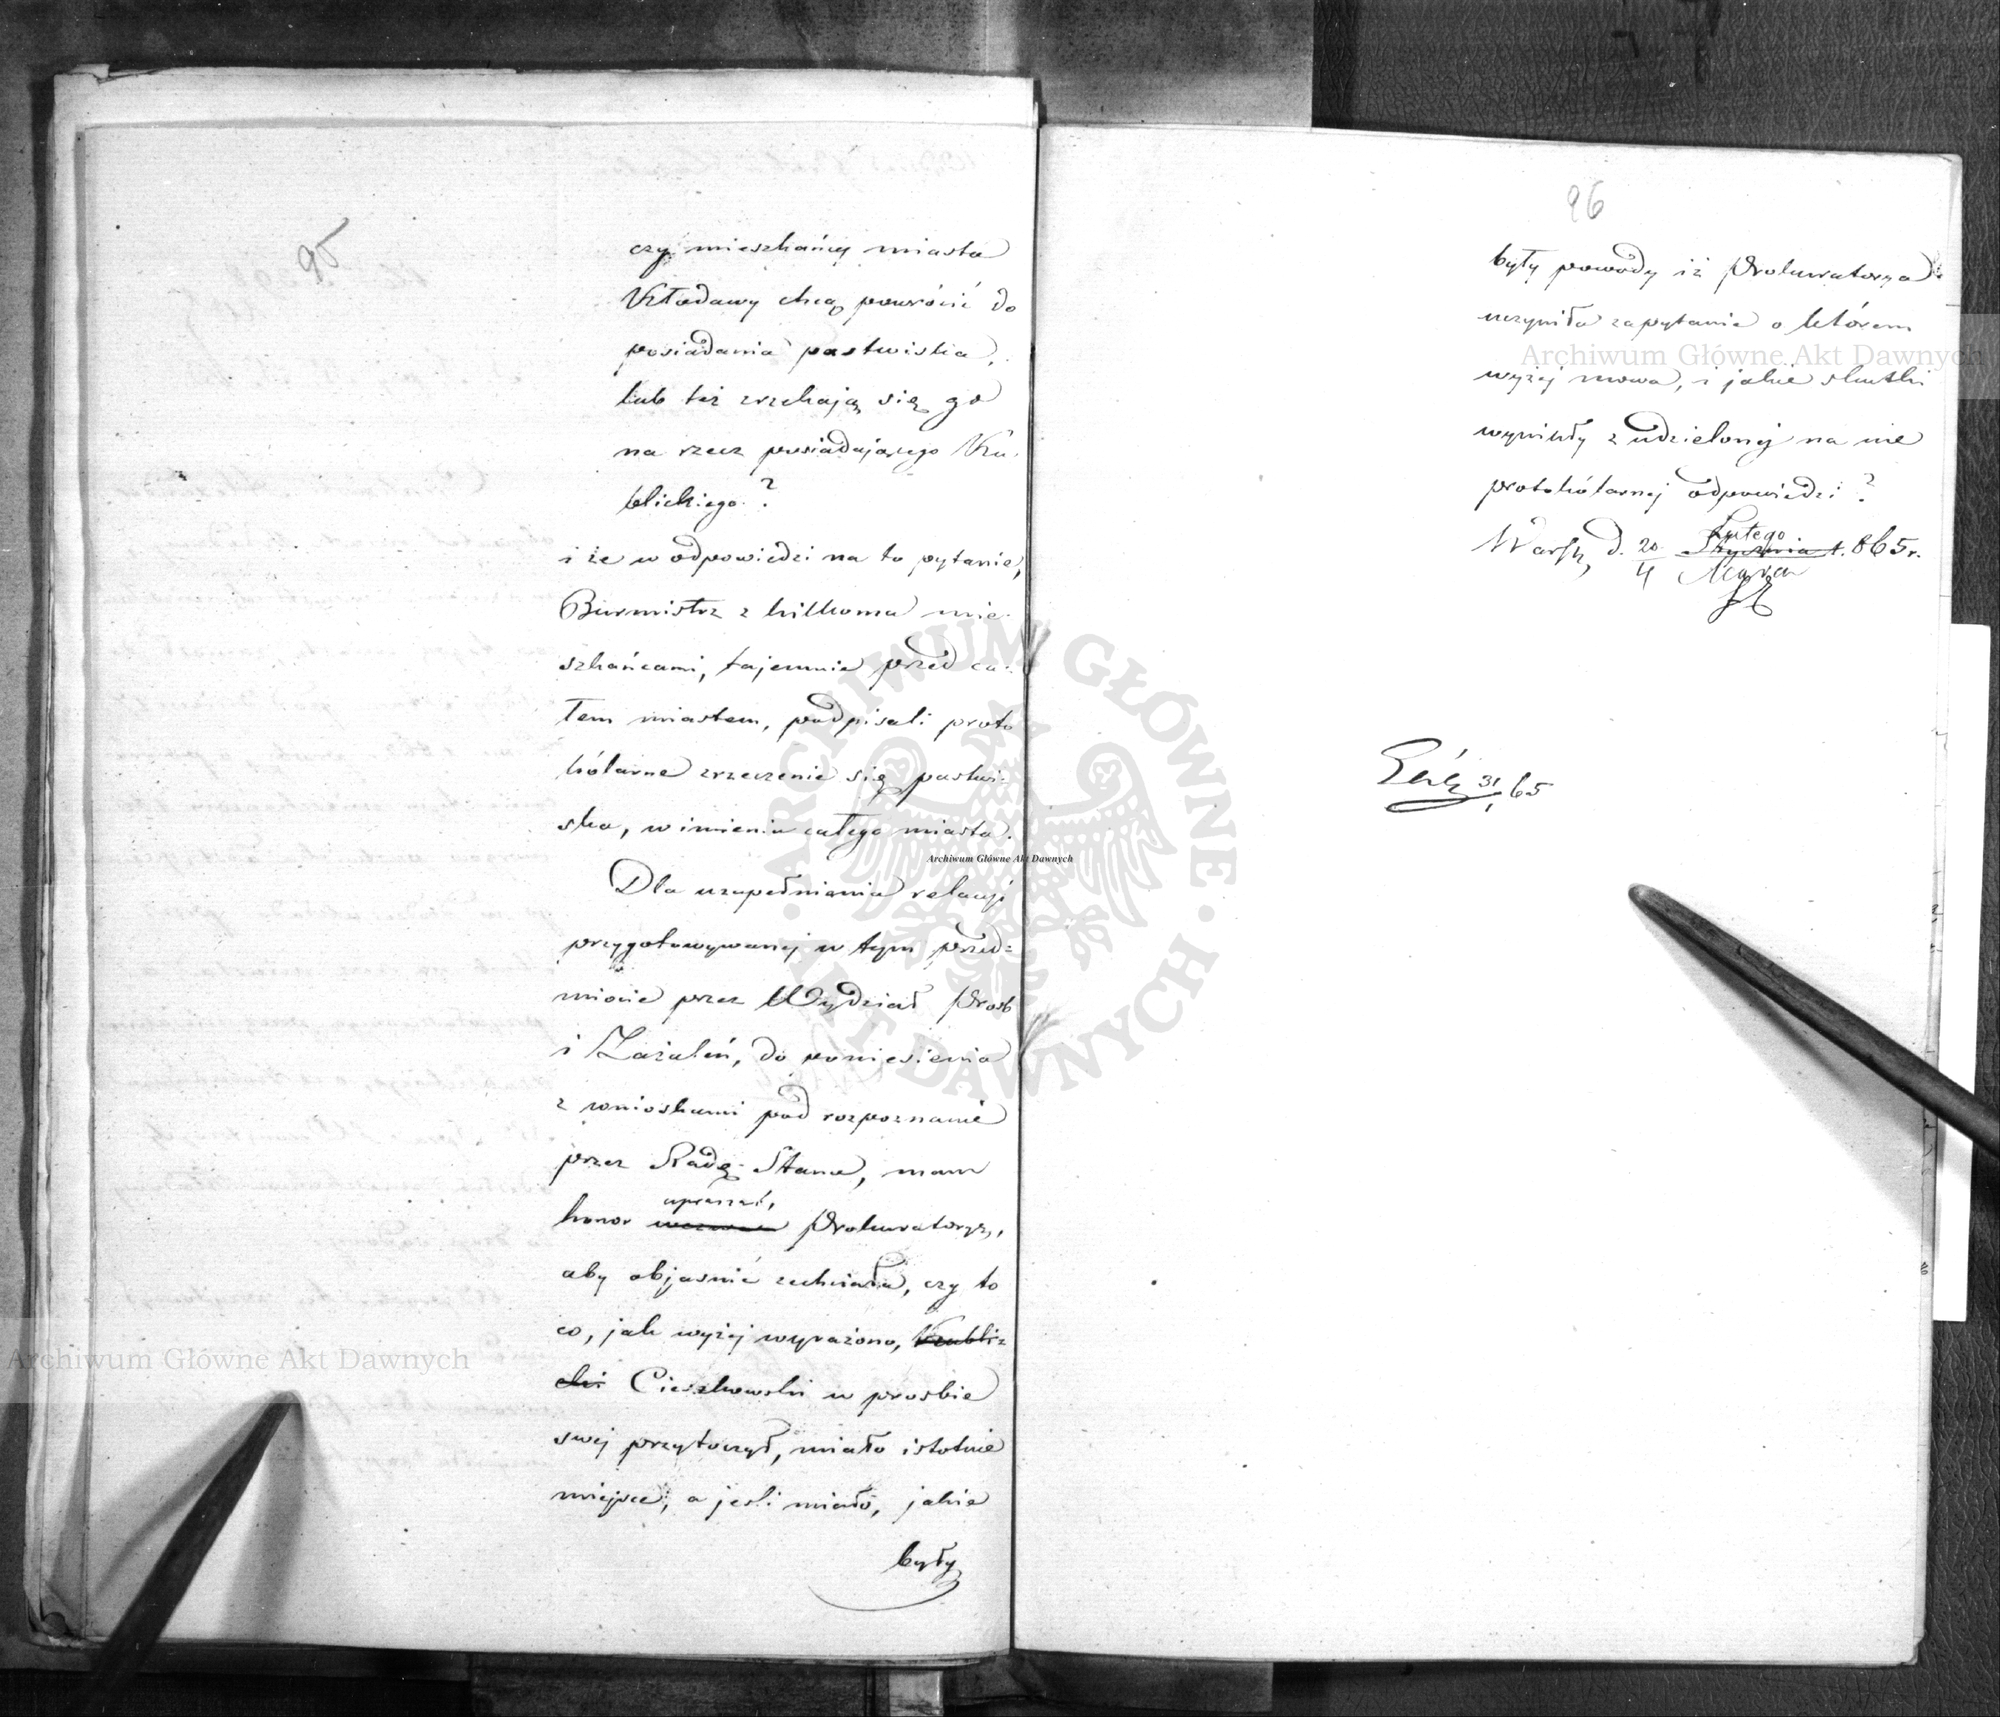 95
czy mieszkańcy miasta
Włodawy chcą powrócić do
posiadania pastwiska,
lub też zrzekają się go
na rzecz posiadającego Ku-
blickiego?
i że w odpowiedzi na to pytanie,
Burmistrz z kilkoma mie-
szkańcami, tajemnie przed ca-
łem miastem, podpisali proto
kólarne zrzeczenie się pastwi-
ska, w imieniu całego miasta.
Dla uzupełnienia relacji
przygotowywanej w tym przed-
miocie przez Wydział Prośb
i Zażaleń, do wniesienia
z wnioskami pod rozpoznanie
przez Radę Stanu, mam
upraszać,
honor Prokuratoryę,
aby objaśnić zechciała, czy to
co, jak wyżej wyrażono, Kublic-
cki Cieszkowski w prośbie
swej przytoczył, miało istotnie
miejsce, a jeśli miało, jakie
były
96
były powody iż Prokuratorya
uczyniła zapytanie o którem
wyżej mowa, i jakie skutki
wynikły z udzielonej na nie
protokólarnej odpowiedzi?
Lutego
Warsz, d. 20/4 Stycznia 1865 r.
Marca
31/1 65
Archiwum Główne Akt Dawnych
Archiwum Główne Akt Dawnych
Archiwum Główne Akt Dawnych
ARCHIWUM GŁÓWNE AKT DAWNYCH